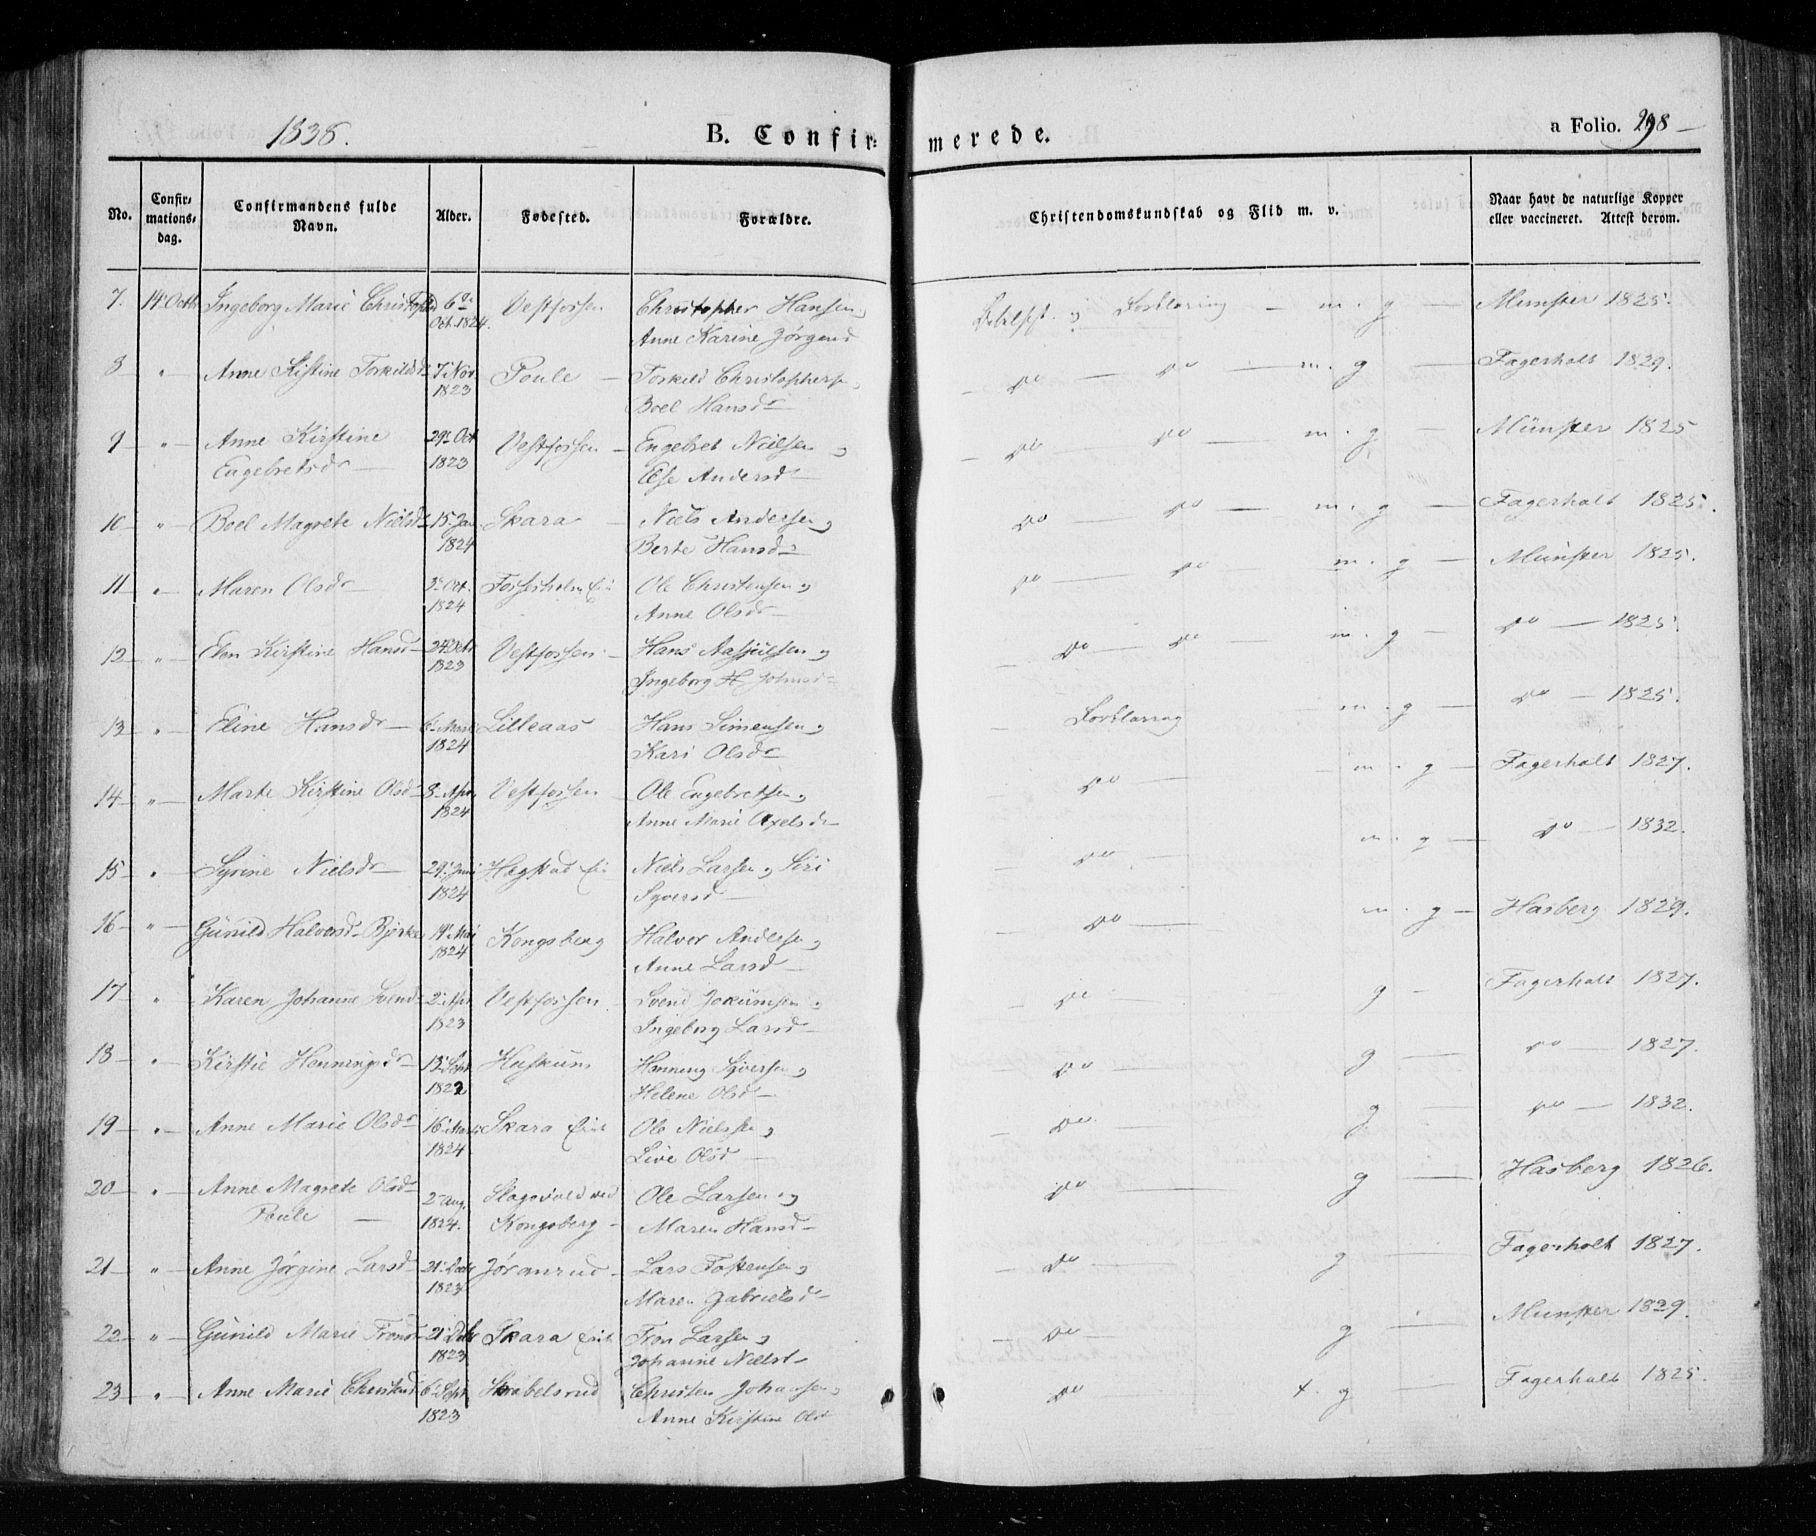 1838.
B. Confir-
merede.
a Folio. 298
No.
Confir-
mations-
dag.
Confirmandens fulde
Navn.
Alder.
Fødested.
Forældre.
Christendomskundskab og Flid m. v.
Naar havt de naturlige Kopper
eller vaccineret. Attest derom.
7. 14 Octb Ingeborg Marie 6 Vestfossen Christopher Hansen og Forklaring - m. g - Munster 1825.
Oct. 1824. Anne Karine Jørgensd
8 " Anne Kistine Torkildsd 7 Nov Poule - Torkild Christophersen do - do - m. g - Fagerholt 1829.
1823 Boel Hansdr
9 " Anne Kirstine 29 Oct Vestfossen - Engebret Nielsen og do - do - m. g - Münster 1825
Engebretsdr - 1823 Else Andersd
10 " Boel Magrete Nielsd 15 Jan Skara - Niels Andersen og do - do - m. g - Fagerholt 1825.
1824 Berte Hansd
11 " Maren Olsdr Oct. Ole Christensen og do - do - m. g - Munster 1825.
1824 Anne Olsdr
12 " Kirstine Hansd 24 Octr Vestfossen - Hans og do do m. g - do - 1825.
1823 Ingeborg H
13 " Eline Hansdr 6 Lilleaas Hans Simensen og Forklaring - m. g - do - 1825.
1824 Kari Olsdr
14 " Marte Kirstine Olsd 8 Apr Vestfossen - Ole Engebretsen og do - m. g - Fagerholt 1827.
1824 Anne Marie Axelsd
15 " Syrine Nielsdr 29 Juni Hegstad Niels Larsen og Siri do - m. g - do - 1832.
1824 Syversd
16 " Gunild Halvorsd Bjerke 19 Mai Kongsberg Halvor Andersen og do - m. g - Hasberg 1829.
1824 Anne Larsd
17 " Karen Johanne Svend 2 Apr Vestfossen Svend Jokumsen og do - g - Fagerholt 1827.
1823 Ingeborg Larsd
18 " Kirstie Henningsdr 13 Sept Henning Syversen og do - g - do - 1827.
1822 Helene Olsd
19 " Anne Marie Olsdr 16 Skara Ole Nielssen og do - g - do - 1832.
1824 Live Olsd
20 " Anne Magrete Olsd 2 Aug. ved Ole Larsen og do - g - Hasberg 1826.
Poule - 1824. Kongsberg - Maren Hansd
21 " Anne Jørgine Larsd 21 Jøranrud Lars Tostensen og do - g - Fagerholt 1827.
1823 Maren Gabrielsd
22 " Gunild Marie 21 Skara Tron Larsen og do - g - Munster 1829.
1823 Johanne Nielsd
23 " Anne Marie 6 Sept Skabelsrud Christen Johansen og do - t. g - Fagerholt 1825.
1823 Anne Kirstine Olsd